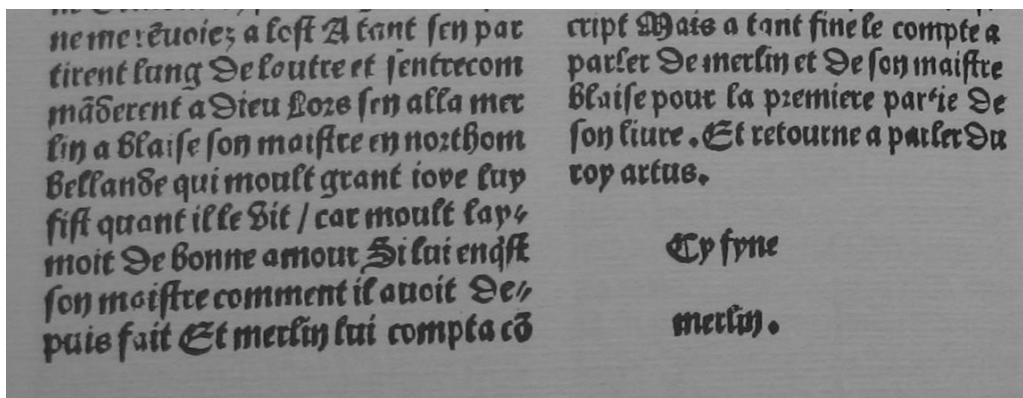 ne me rẽuoiez a cest A tant sen par
tirent lung de loutre et sentrecom
mãderent a dieu Lors sen alla mer
lin a blaise son maistre en northom
bellande qui moult grant ioye luy
fist quant il le vit / car moult lay⸗
moit de bonne amour Si lui enqist
son maistre comment il auoit de⸗
puis fait Et merlin lui compta cõ
cript Mais a tant fine le compte a
parler de merlin et de son maistre
blaise pour la premiere partie de
son liure . Et retourne a parler du
roy artus.
Cy fyne
merlin .